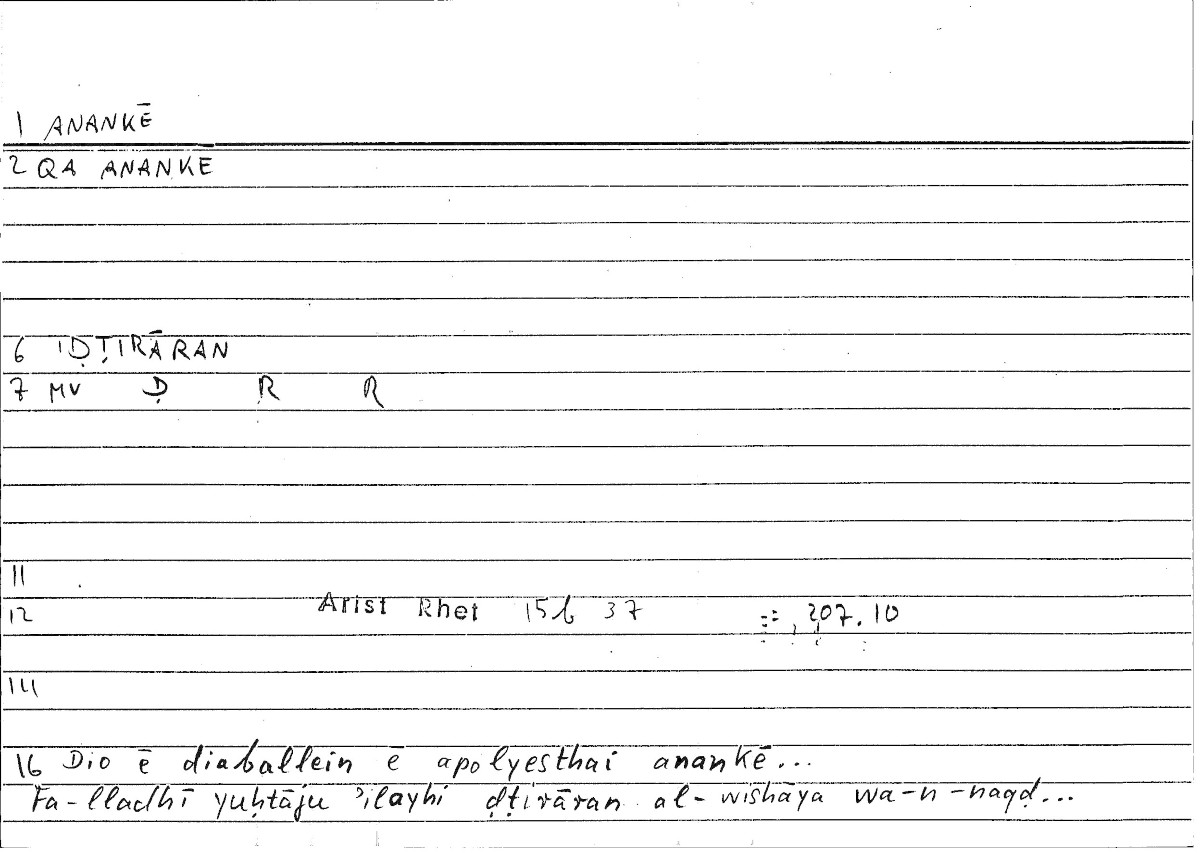 1 ANANKĒ
2 QA ANANKE
6 IḌṬIRĀRAN
7 MV Ḍ R R
11
12 Arist Rhet 15b 37 = 207.10
14
16 Dio ē diaballein ē apolyesthai anankē...
Fa-lladhī yuḥtāju ʾilayhi ḍṭirāran al-wishāya wa-n-naqḍ...